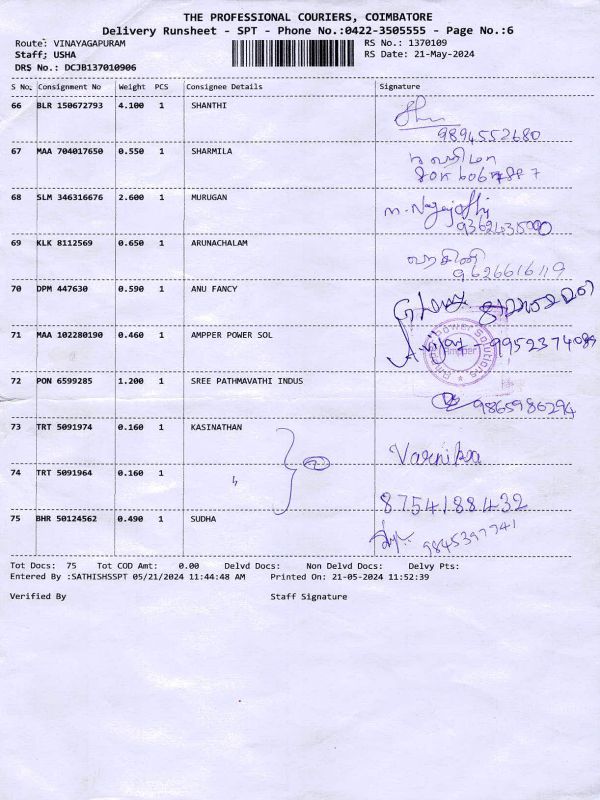 THE PROFESSIONAL COURIERS, COIMBATORE
Delivery Runsheet - SPT - Phone No.:0422-3505555 - Page No.:6
Route: VINAYAGAPURAM RS No.: 1370109
Staff: USHA RS Date: 21-May-2024
DRS No.: DCJB137010906
S No. Consignment No Weight PCS Consignee Details Signature
66 BLR 150672793 4.100 1 SHANTHI
9894552680
67 MAA 704017650 0.550 1 SHARMILA
68 SLM 346316676 2.600 1 MURUGAN M. Nagajothi
69 KLK 8112569 0.650 1 ARUNACHALAM
9626616119
70 DPM 447630 0.590 1 ANU FANCY
71 MAA 102280190 0.460 1 AMPPER POWER SOL 9952374089
Ampper Power Solutions
72 PON 6599285 1.200 1 SREE PATHMAVATHI INDUS
9865986294
73 TRT 5091974 0.160 1 KASINATHAN Varnika
74 TRT 5091964 0.160 1
8754188432
75 BHR 50124562 0.490 1 SUDHA
9845397741
Tot Docs: 75 Tot COD Amt: 0.00 Delvd Docs: Non Delvd Docs: Delvy Pts:
Entered By :SATHISHSSPT 05/21/2024 11:44:48 AM Printed On: 21-05-2024 11:52:39
Verified By Staff Signature